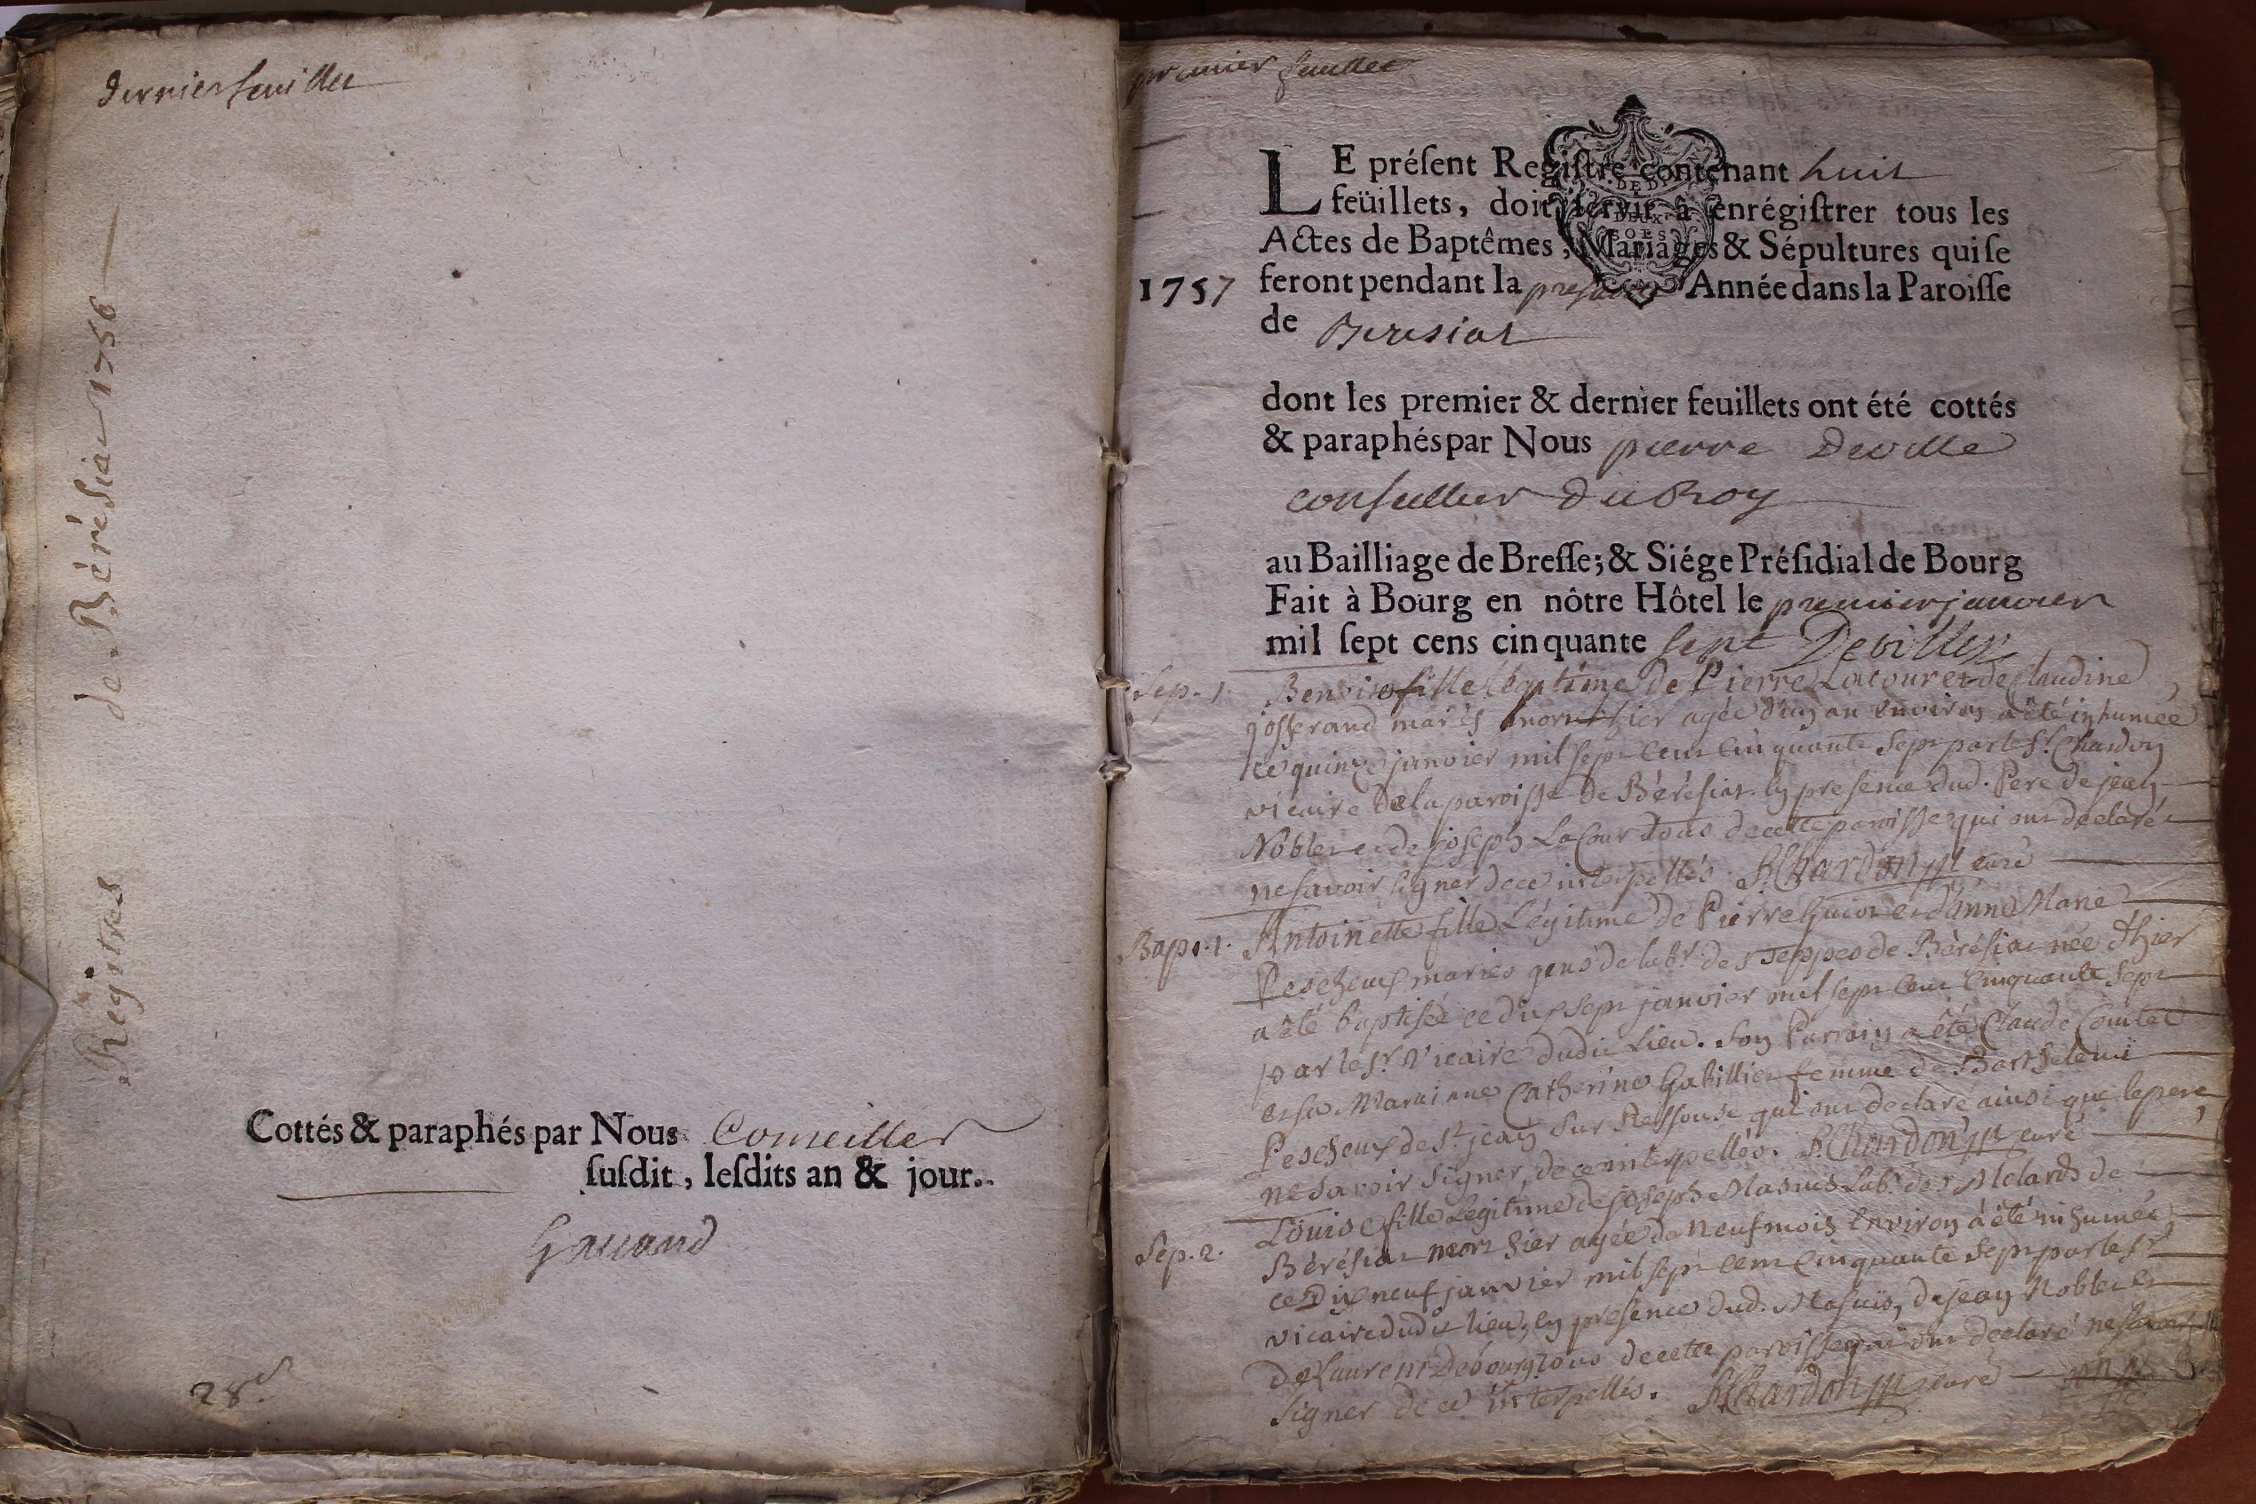 dernier feuillet
Régistres de Bérésiat 1756
Cottés & paraphés par Nous Conseiller
ſuſdit, leſdits an & jour.
28 s
premier feuillet
LE préſent Regiſtre contenant huit
feüillets, doit ſervir à enrégiſtrer tous les
Actes de Baptêmes, Mariages & Sépultures qui ſe
1757 feront pendant la presente Année dans la Paroiſſe
de Beresiat
dont les premier & dernier feuillets ont été cottés
& paraphés par Nous pierre Deville
conseiller du Roy
au Bailliage de Breſſe; & Siége Préſidial de Bourg
Fait à Bourg en nôtre Hôtel le premier janvier
mil ſept cens cinquante sept Deville
Sep. 1. Benoite fille légitime de Pierre Lacour et de Claudine
josserand mariés morte hier agée d'un an environ a été inhumée
ce quinze janvier mil sept cent cinquante sept par le Sr. Chardon
vicaire de la paroisse de Bérésiat en presence dud. Pere de jean
Noblet et de joseph Lacour tous de cette paroisse qui ont declaré
ne savoir signer de ce interpellés. Chardon curé
Bapt. 1. Antoinette fille Légitime de Pierre Guiot et d'anne Marie
Pescheux mariés gens de labr. des Teppes de Bérésiat née d'hier
a été baptisée ce dix sept janvier mil sept cent cinquante sept
par le Sr. Vicaire dudit Lieu. Son Parrain a été Claude Comtet
et sa Maraine Catherine Gabillier femme de Barthelemi
Pescheux de St. jean sur Ressouse qui ont declaré ainsi que le pere
ne savoir signer, de ce interpellés. Chardon curé
Sep. 2. Louise fille Légitime de joseph Masuis Labr. des Molards de
Bérésiat mort hier agée de neuf mois environ a été inhumée
ce dix neuf janvier mil sept cent cinquante sept par le Sr.
vicaire dudit lieu, en presence dud. Masuis, de jean Noblet et
de Laurent Debourg tous de cette paroisse qui ont declaré ne savoir
signer de ce interpellés. Chardon curé